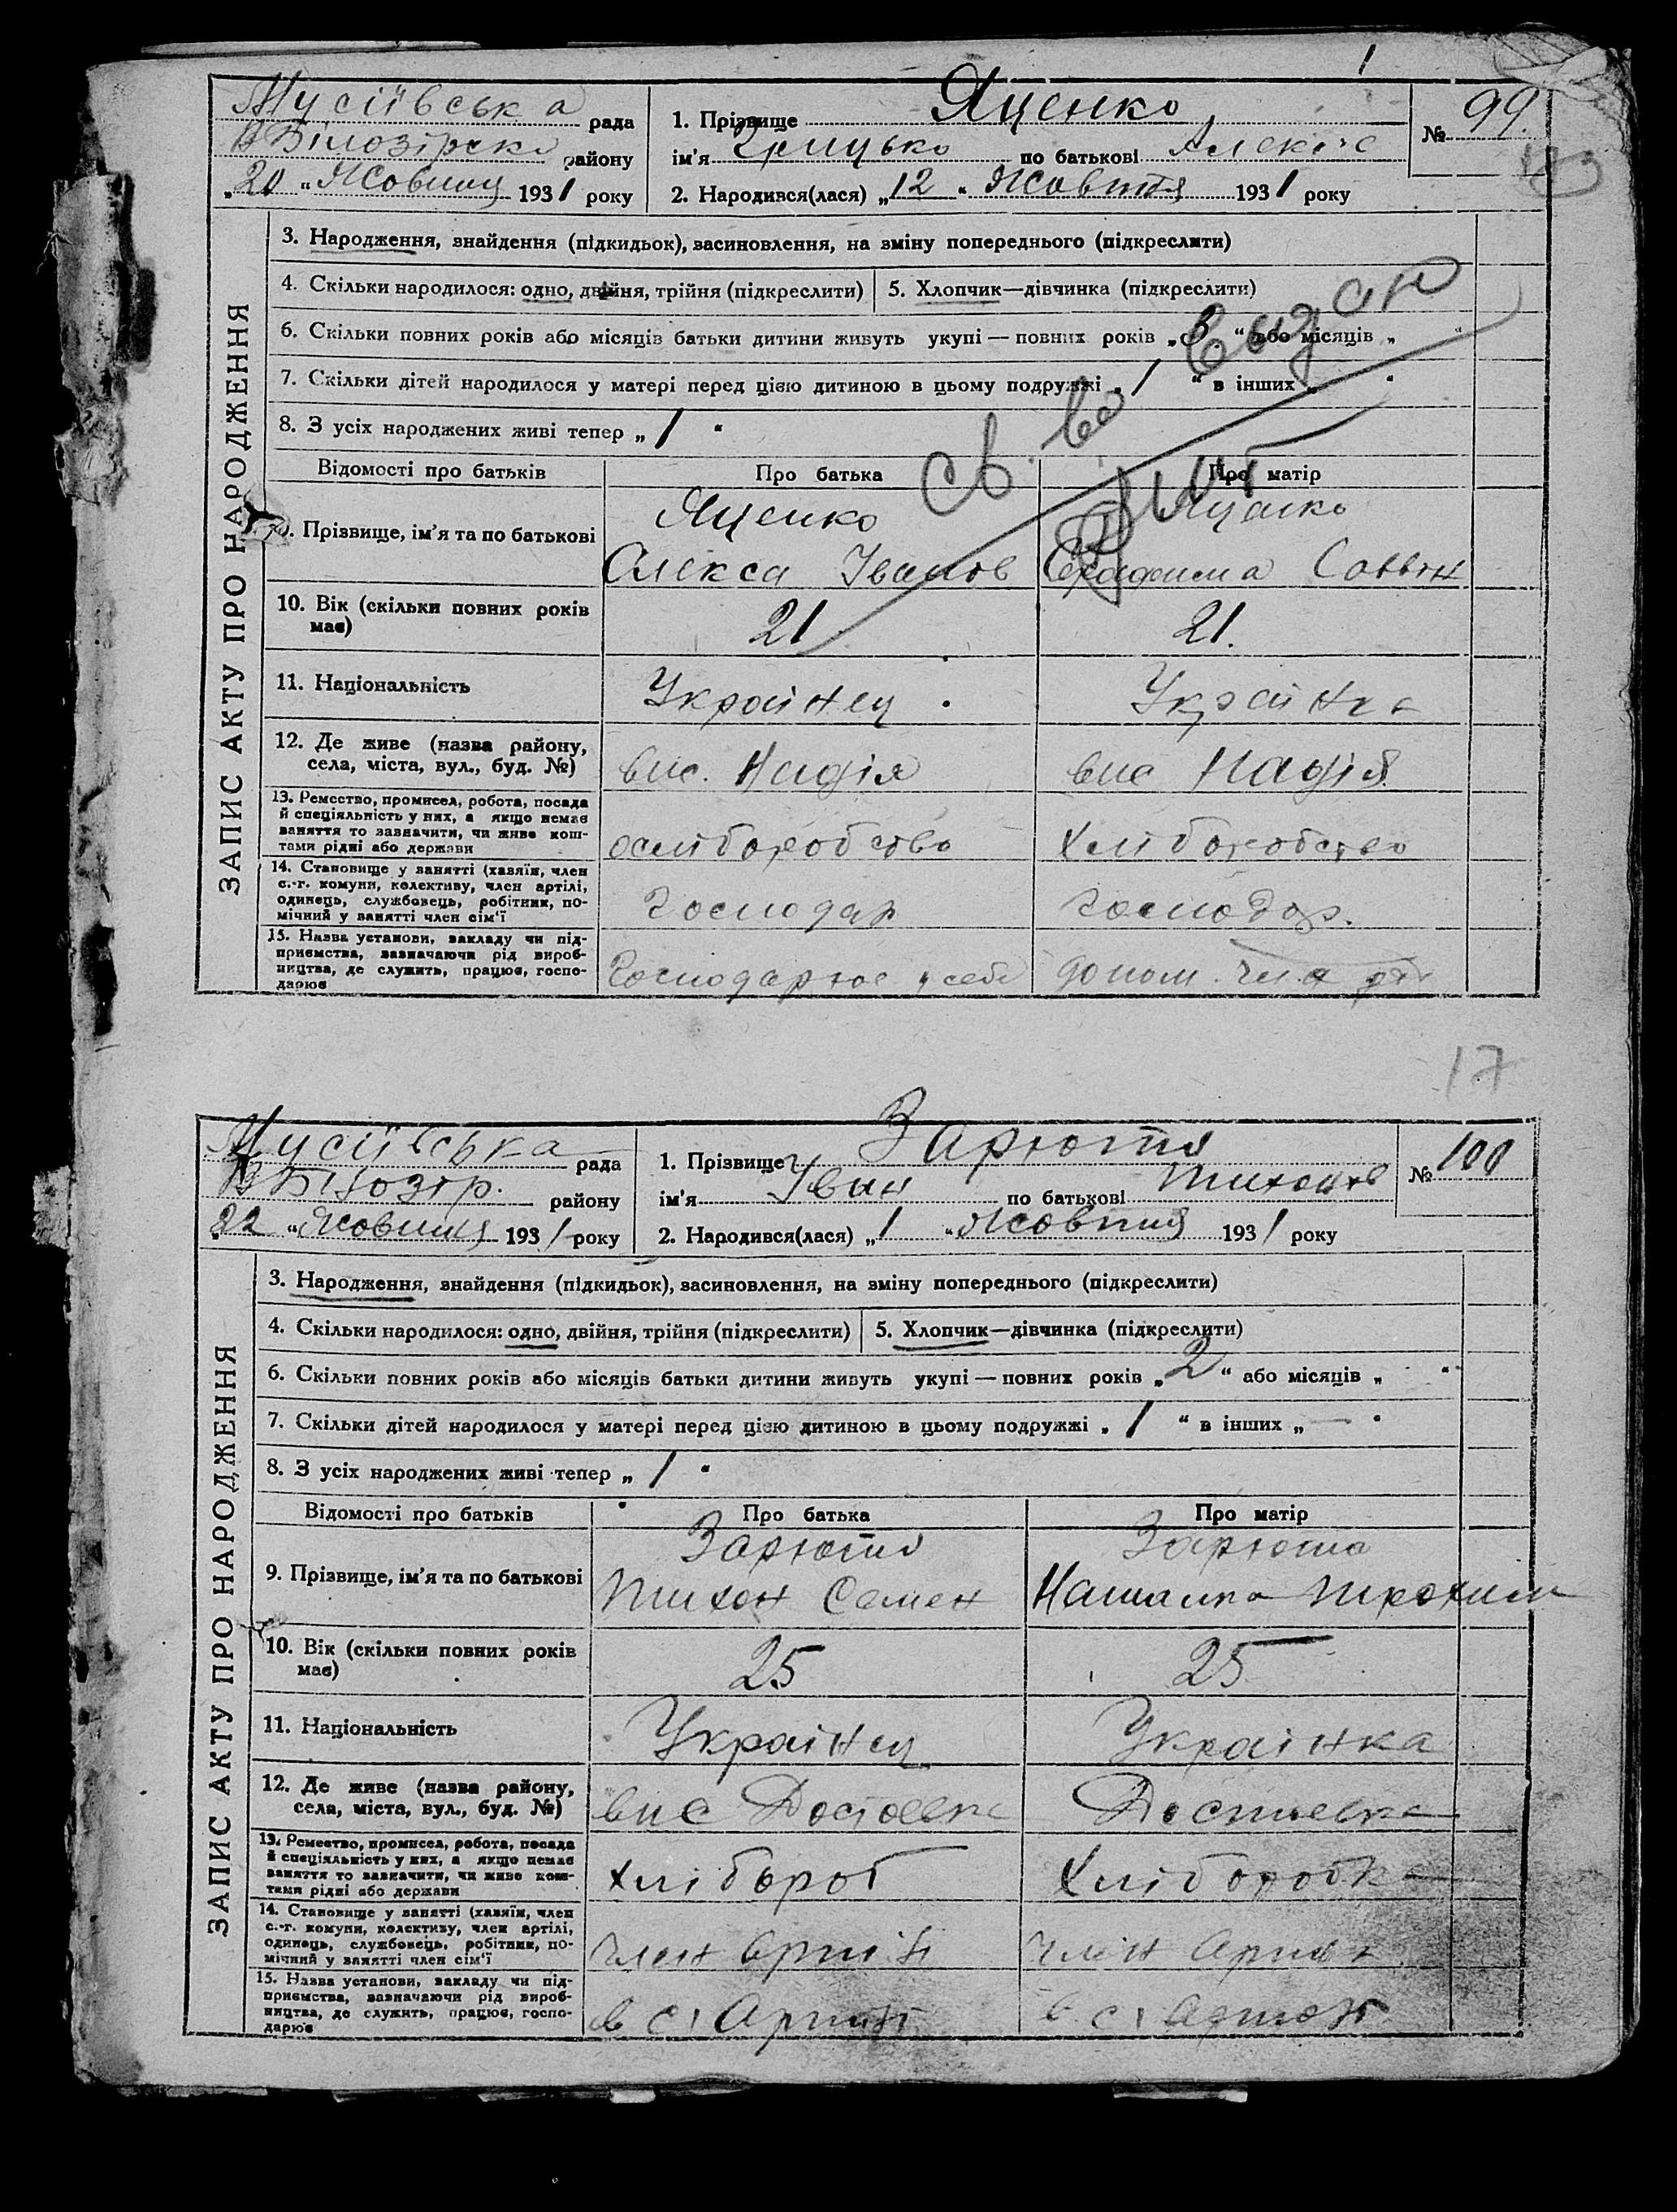 1
Мусіївська рада
ВБілозірсько району
„20“ Жовтня 1931 року
1. Прізвище Яценко
ім'я Грицько по батькові Алексіє
2. Народився(лася) „12“ Жовтня 1931 року
№ 99.
ЗАПИС АКТУ ПРО НАРОДЖЕННЯ
3. Народження, знайдення (підкидьок), засиновлення, на зміну попереднього (підкреслити)
4. Скільки народилося: одно, двійня, трійня (підкреслити)
5. Хлопчик—дівчинка (підкреслити)
6. Скільки повних років або місяців батьки дитини живуть укупі — повних років „3“ або місяців „ “
7. Скільки дітей народилося у матері перед цією дитиною в цьому подружжі „1“ в інших „
8. З усіх народжених живі тепер „1“
Св. во выдан
Відомості про батьків
Про батька
Про матір
9. Прізвище, ім'я та по батькові
Яценко
Олекса Іванов
Яценко
Серафима Саввін
10. Вік (скільки повних років
має)
21
21.
11. Національність
Українец
Українка
12. Де живе (назва району,
села, міста, вул., буд. №)
вис. Надія
вис Надія
13. Ремество, промисел, робота, посада
й спеціяльність у них, а якщо немає
заняття то зазначити, чи живе кош-
тами рідні або держави
хліборобство
Хліборобство
14. Становище у занятті (хазяїн, член
с.-г. комуни, колективу, член артілі,
одинець, службовець, робітник, по-
мічний у занятті член сім'ї
Господар
Господар.
15. Назва установи, закладу чи під-
приємства, зазначаючи рід вироб-
ництва, де служить, працює, госпо-
дарює
Господарює у себе
допом. чл.
17
Мусіївська рада
ВБілозір. району
„22“ Жовтня 1931 року
1. Прізвище Зарютя
ім'я Іван по батькові Тихонов
2. Народився(лася) „1“ Жовтня 1931 року
№ 100
ЗАПИС АКТУ ПРО НАРОДЖЕННЯ
3. Народження, знайдення (підкидьок), засиновлення, на зміну попереднього (підкреслити)
4. Скільки народилося: одно, двійня, трійня (підкреслити)
5. Хлопчик—дівчинка (підкреслити)
6. Скільки повних років або місяців батьки дитини живуть укупі — повних років „2“ або місяців „ “
7. Скільки дітей народилося у матері перед цією дитиною в цьому подружжі „1“ в інших „—
8. З усіх народжених живі тепер „1“
Відомості про батьків
Про батька
Про матір
9. Прізвище, ім'я та по батькові
Зарютя
Тихон Семен
Зарюта
Наталка Трохим
10. Вік (скільки повних років
має)
25
25
11. Національність
Українец
Українка
12. Де живе (назва району,
села, міста, вул., буд. №)
вис Достоевка
Достоевка
13. Ремество, промисел, робота, посада
й спеціяльність у них, а якщо немає
заняття то зазначити, чи живе кош-
тами рідні або держави
хлібороб
Хліборобка
14. Становище у занятті (хазяїн, член
с.-г. комуни, колективу, член артілі,
одинець, службовець, робітник, по-
мічний у занятті член сім'ї
член Артілі
член Артілі
15. Назва установи, закладу чи під-
приємства, зазначаючи рід вироб-
ництва, де служить, працює, госпо-
дарює
в с. Артілі
в с. Артілі